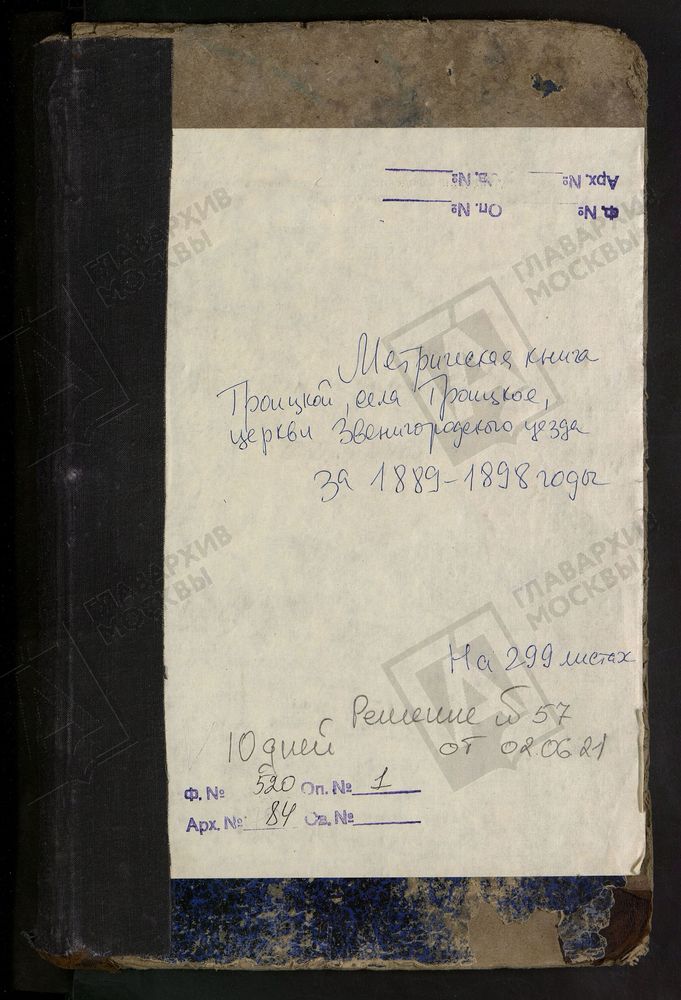 Арх. № Св. №
Ф. № Оп. №
Метрическая книга
Троицкой, села Троицкое,
церкви Звенигородского уезда
за 1889-1898 годы
На 299 листах
Решение № 57
10 дней от 02.06.21
Ф. № 520 Оп. № 1
Арх. № 84 Св. №
ГЛАВАРХИВ
МОСКВЫ
ГЛАВАРХИВ
МОСКВЫ
ГЛАВАРХИВ
МОСКВЫ
ГЛАВАРХИВ
МОСКВЫ